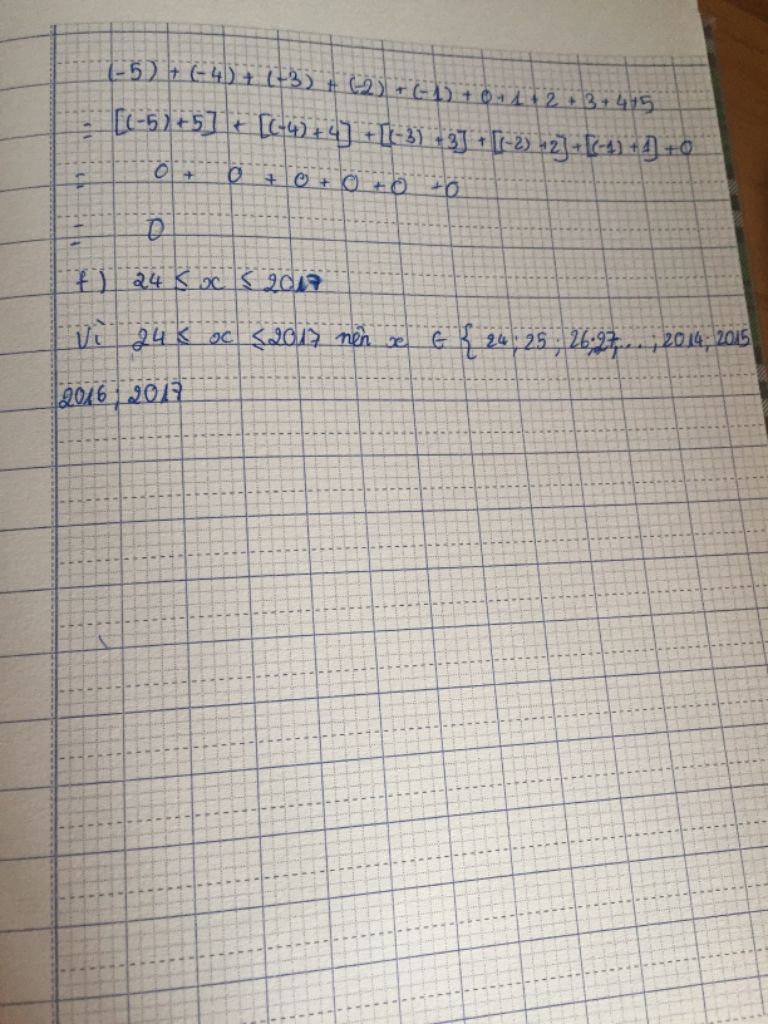 (-5) + (-4) + (-3) + (-2) + (-1) + 0 + 1 + 2 + 3 + 4 + 5
= [(-5) + 5] + [(-4) + 4] + [(-3) + 3] + [(-2) + 2] + [(-1) + 1] + 0
= 0 + 0 + 0 + 0 + 0 + 0
= 0
f) 24 ≤ x ≤ 2017
Vì 24 ≤ x ≤ 2017 nên x ∈ { 24 ; 25 ; 26 ; 27 ; ... ; 2014 ; 2015
2016 ; 2017